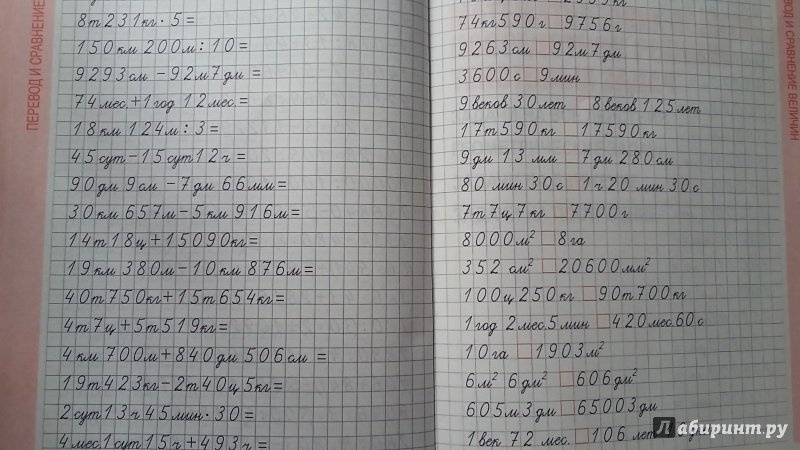 ПЕРЕВОД И СРАВНЕНИЕ
8т 231кг · 5 =
150 км 200м : 10 =
9293см - 92м 7дм =
74мес. + 1год 12мес. =
18км 124м : 3 =
45сут - 15сут 12ч =
90дм 9см - 7дм 66мм =
30км 657м - 5км 916м =
14т 18ц + 15090кг =
19км 380м - 10км 876м =
40т 750кг + 15т 654кг =
4т 7ц + 5т 519кг =
4км 700м + 840дм 506см =
19т 423кг - 2т 40ц 5кг =
2сут 13ч 45мин · 30 =
4мес. 1сут 15ч + 493ч =
74кг 590г □ 9756г
9263см □ 92м 7дм
3600с □ 9мин
9веков 30лет □ 8веков 125лет
17т 590кг □ 17590кг
9дм 13мм □ 7дм 280см
80 мин 30с □ 1ч 20 мин 30с
7т 7ц 7кг □ 7700г
8000м² □ 8га
352 см² □ 20600мм²
100ц 250кг □ 90т 700кг
1год 2мес. 5мин □ 420мес. 60с
10га □ 1903м²
6м² 6дм² □ 606дм²
605м 3дм □ 65003дм
1век 72 мес. □ 106 лет
ВОД И СРАВНЕНИЕ ВЕЛИЧИН
Лабиринт.ру